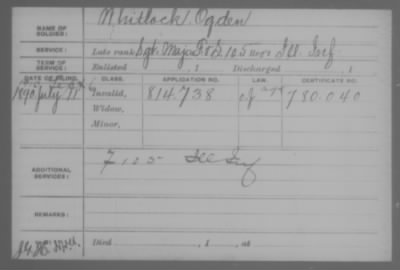 NAME OF SOLDIER: Whitlock, Ogden
SERVICE: Late rank, Sgt. Maj. F&S, 105 Reg't Ill. Inf.
TERM OF SERVICE: Enlisted , 1 Discharged , 1
DATE OF FILING. CLASS. APPLICATION NO. LAW. CERTIFICATE NO.
1890 July 11 Invalid, 814.738 780.040
Widow,
Minor,
ADDITIONAL SERVICES: F 105 Ill Inf
REMARKS:
Died , 1 , at